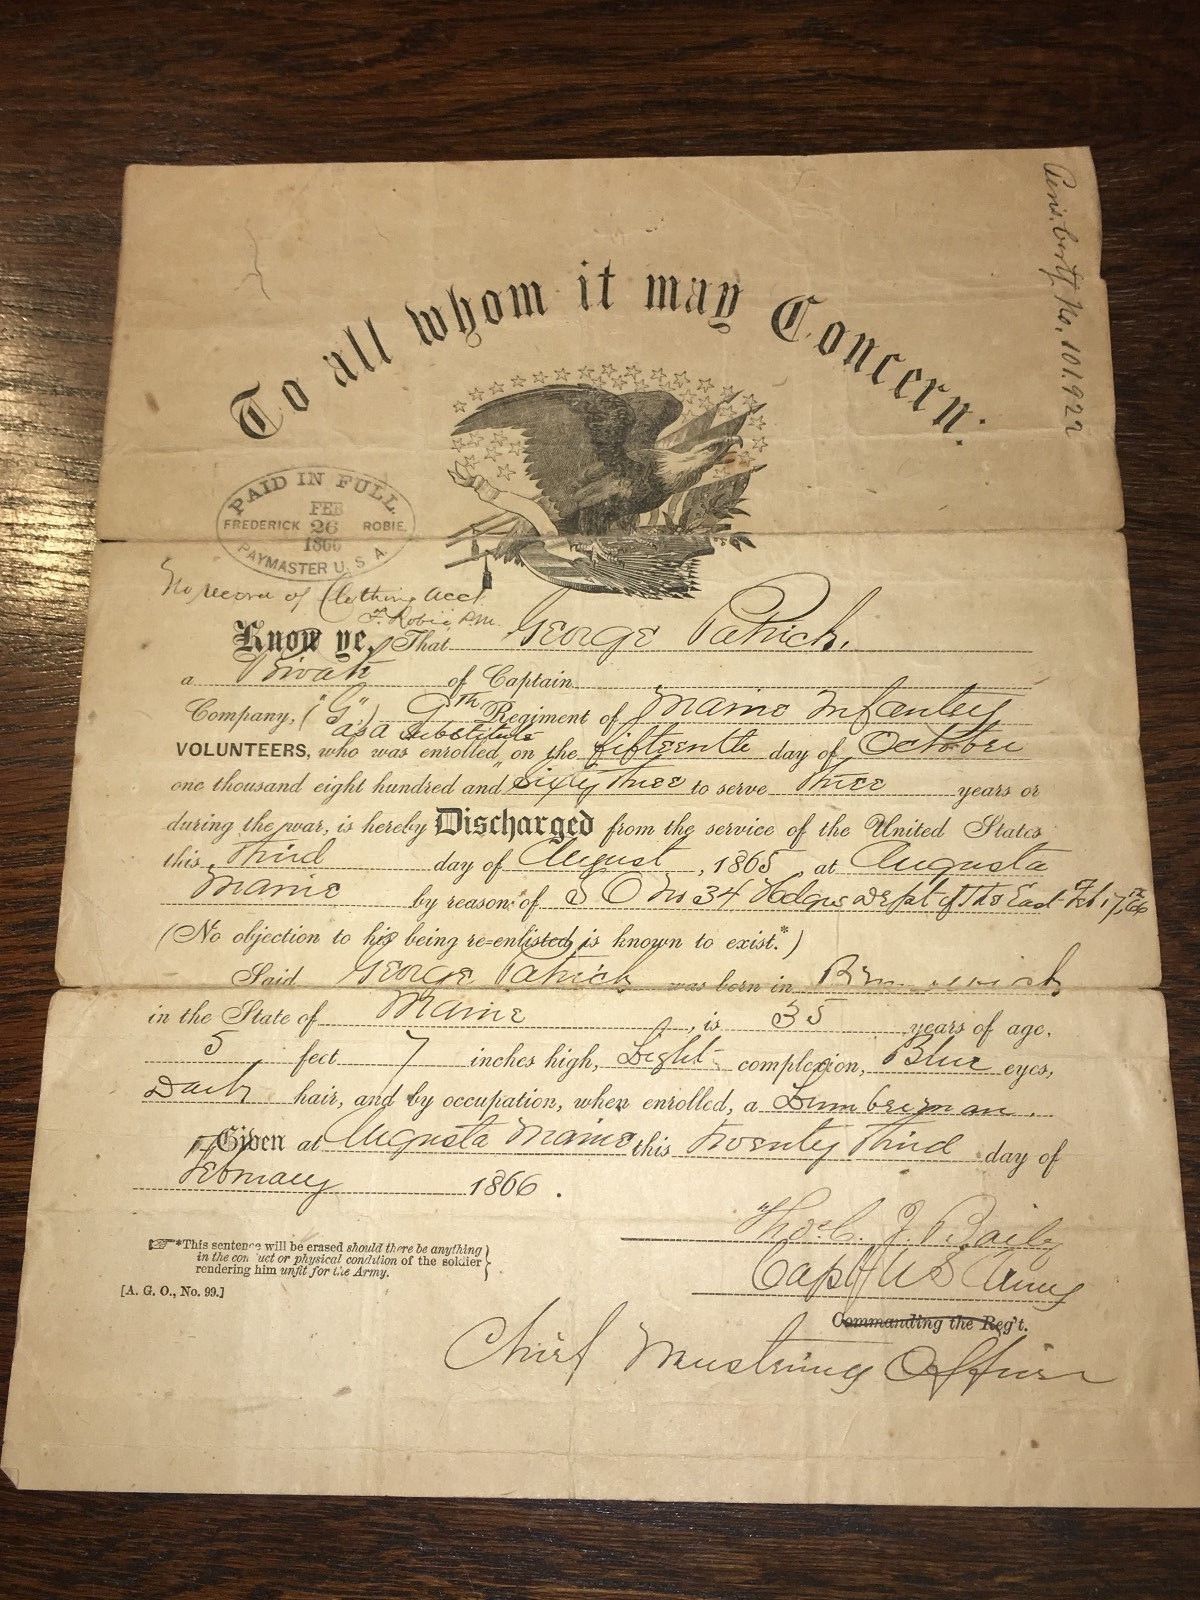 Pens. Certf. No. 101.922
To all whom it may Concern:
PAID IN FULL
FEB
FREDERICK 26 ROBIE,
1866
PAYMASTER U. S. A.
No record of Clothing acct
F. Robie, P.M.
Know ye, That George Patrick,
a Private of Captain
Company, ("G") 9th Regiment of Maine Infantry
as a substitute
VOLUNTEERS, who was enrolled on the fifteenth day of October
one thousand eight hundred and Sixty Three to serve Three years or
during the war, is hereby Discharged from the service of the United States
this Third day of August, 1865, at Augusta
Maine by reason of S O No 34 Hdqrs Dept of The East Feb 17th /66
(No objection to his being re-enlisted is known to exist.*)
Said George Patrick was born in Brunswick
in the State of Maine, is 35 years of age,
5 feet 7 inches high, Light complexion, Blue eyes,
Dark hair, and by occupation, when enrolled, a Lumberman.
Given at Augusta Maine this Twenty Third day of
February 1866.
Thos. C. J. Baily
Capt U S Army
*This sentence will be erased should there be anything
in the conduct or physical condition of the soldier
rendering him unfit for the Army.
[A. G. O., No. 99.]
Commanding the Reg't.
Chief Mustering Officer